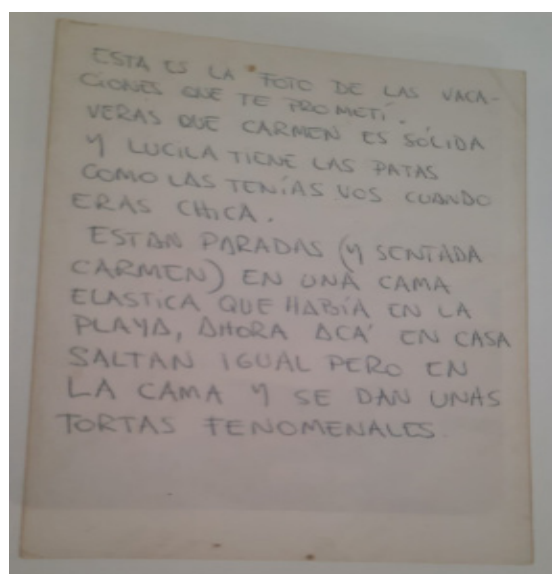 ESTA ES LA FOTO DE LAS VACA-
CIONES QUE TE PROMETÍ.
VERÁS QUE CARMEN ES SÓLIDA
Y LUCILA TIENE LAS PATAS
COMO LAS TENÍAS VOS CUANDO
ERAS CHICA.
ESTAN PARADAS (Y SENTADA
CARMEN) EN UNA CAMA
ELASTICA QUE HABÍA EN LA
PLAYA, AHORA ACÁ EN CASA
SALTAN IGUAL PERO EN
LA CAMA Y SE DAN UNAS
TORTAS FENOMENALES.